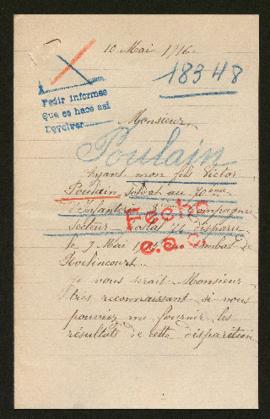 10 Mai 1916
18348
Pedir informes
que se hace así
Devolver
Monsieur,
Poulain
Ayant mon fils Victor
Poulain, soldat au 70ème
d'Infanterie Compagnie
Secteur Postal disparu
le 9 Mai combat de
Roclincourt.
Je vous serait Monsieur
très reconnaissant si vous
pouviez me fournir les
résultats de cette disparition
Fecho